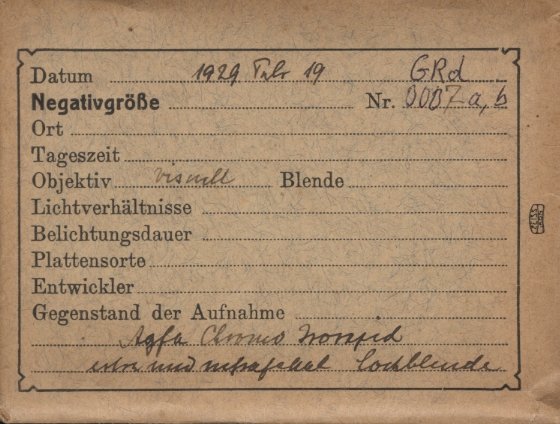 Datum 1929 Febr 19 GRd
Negativgröße Nr. 0007 a, b
Ort
Tageszeit
Objektiv visuell Blende
Lichtverhältnisse
Belichtungsdauer
Plattensorte
Entwickler
Gegenstand der Aufnahme
Agfa Chromo Isorapid
und Lochblende